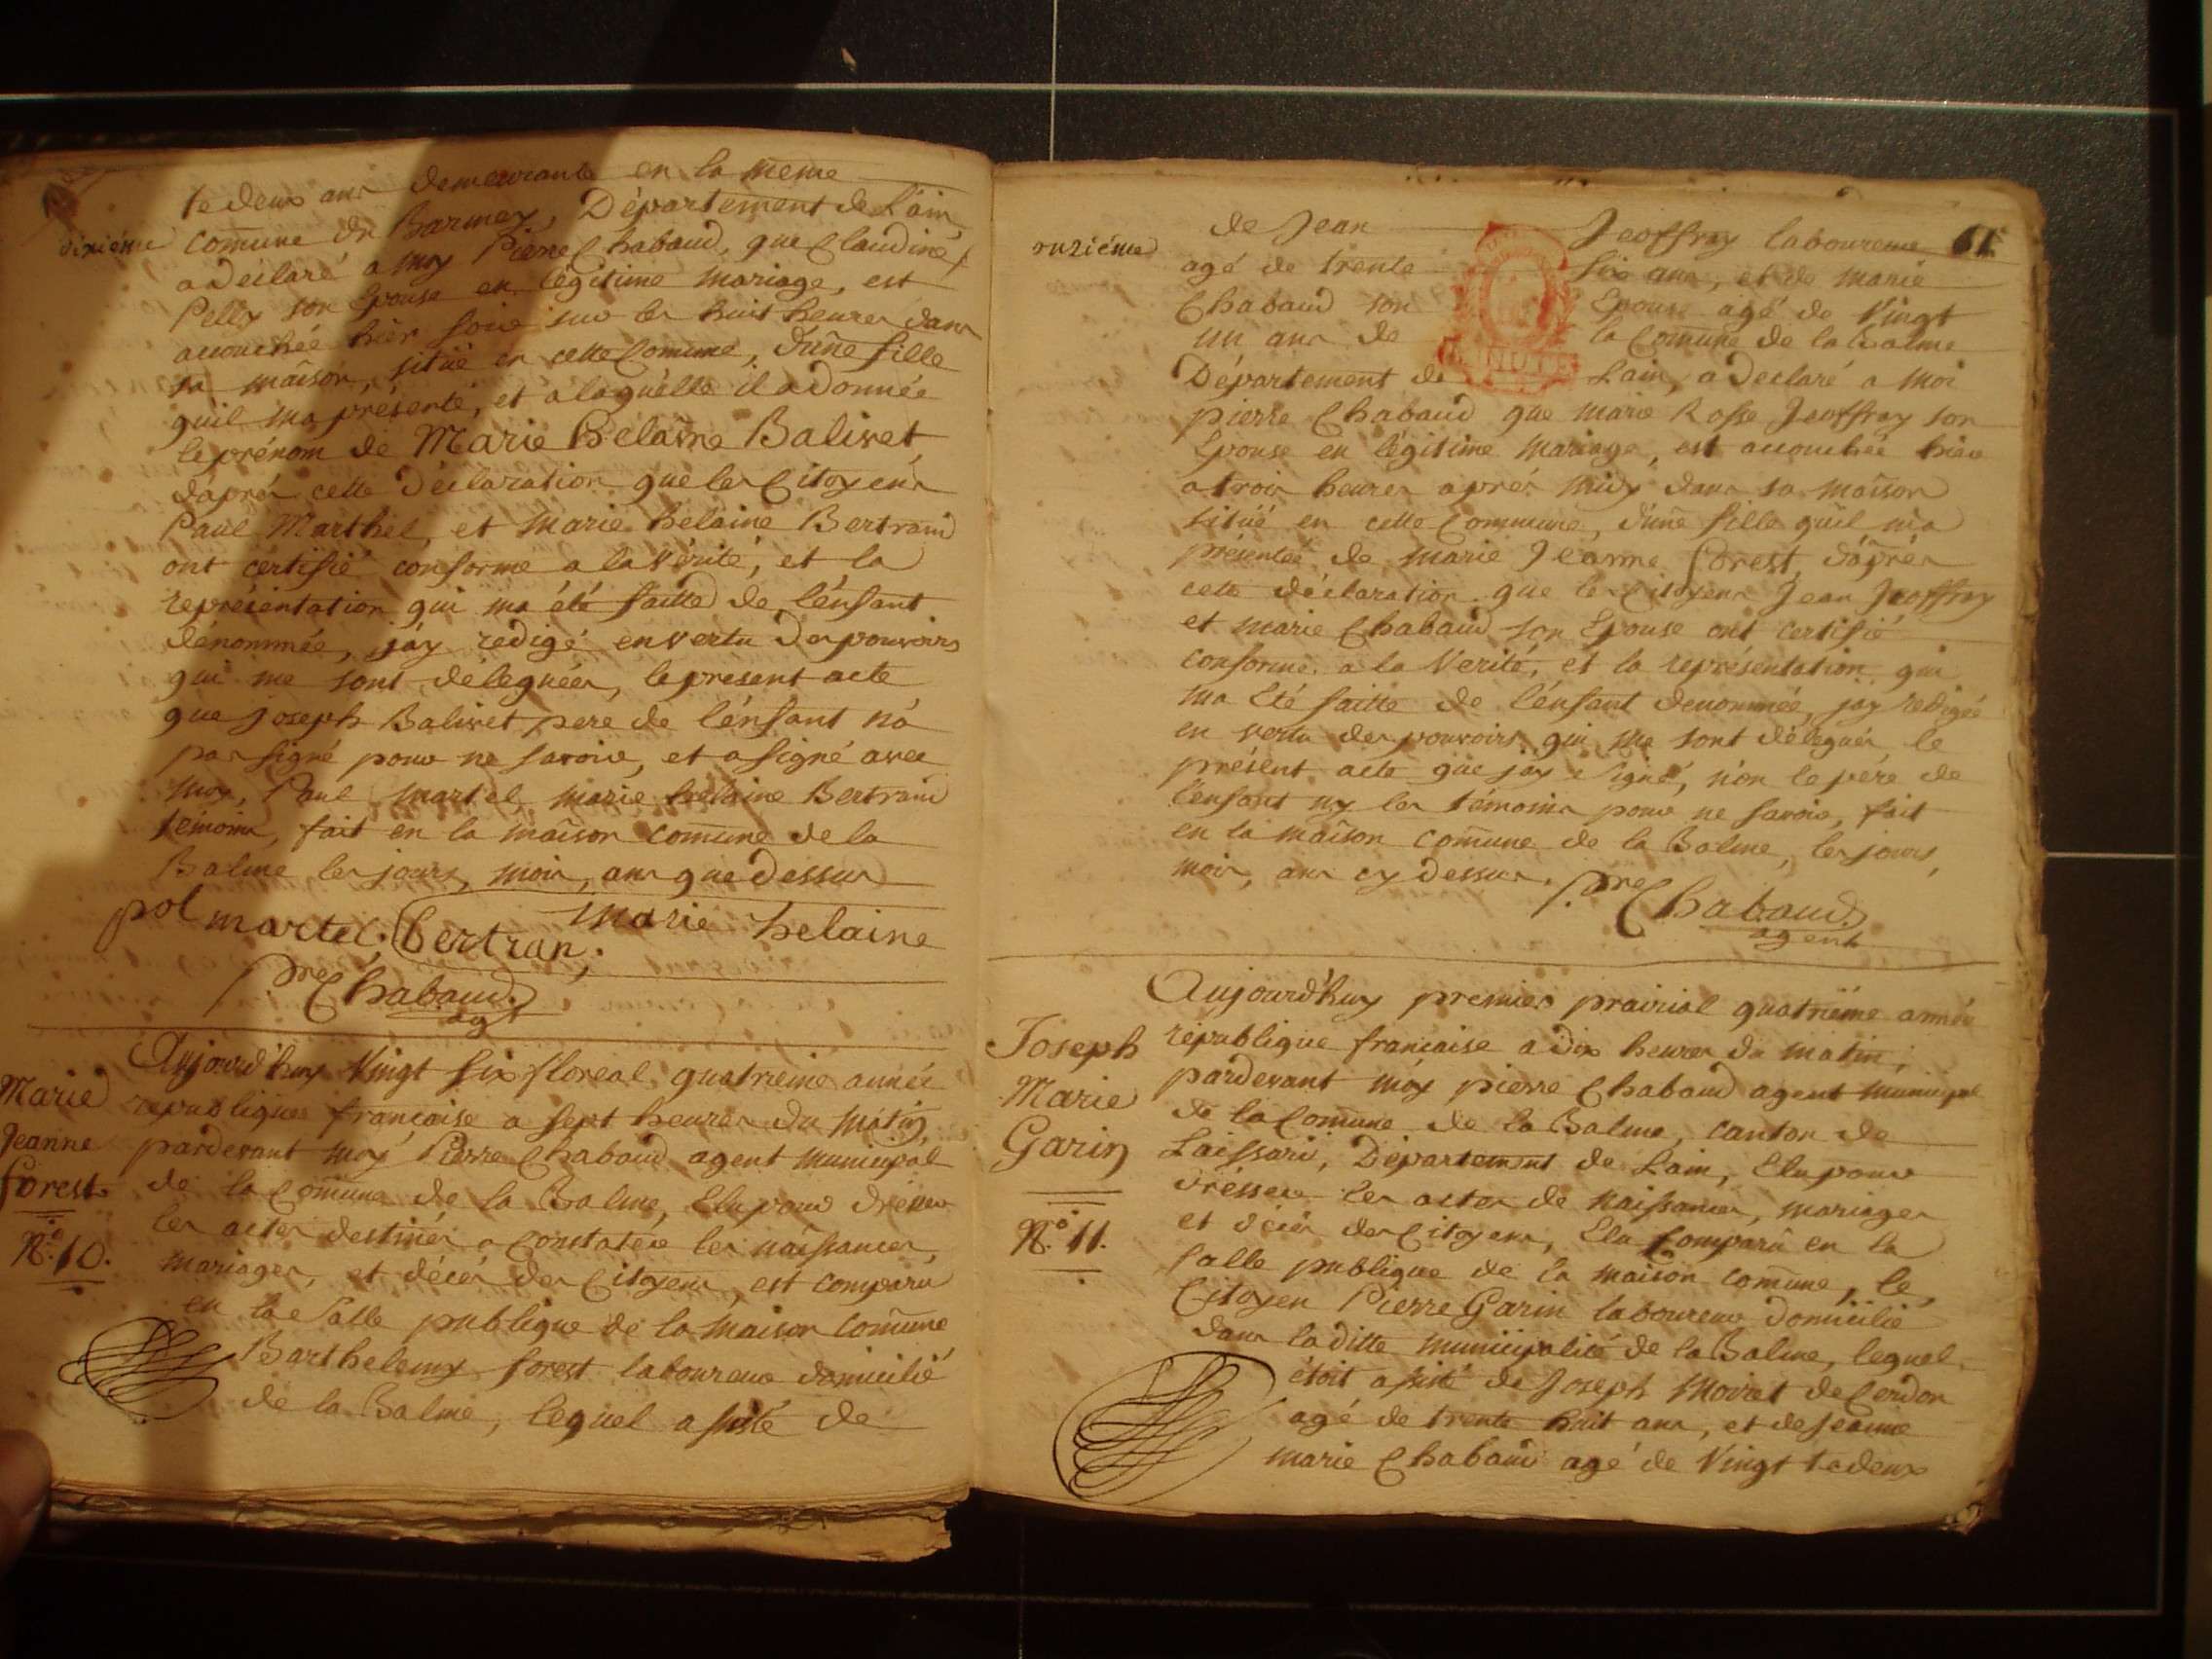 dixiéme
te deux ans demeurante en la même
Comune de Barmex, Département de Lain,
a déclaré a moy Pierre Chabaud, que Claudine
Pelly son Epouse en légitime mariage, est
accouchée hièr soir sur les huit heures dans
sa maîson, situé en cette Comune, d'une fille
quil ma présenté, et alaquèlle il adonnée
le prénom de Marie Helaîne Balivet,
d'aprés cette déclaration que les Citoyens
Paul Marthel, et Marie helaine Bertrand
ont cértifié conforme a la Vérité, et la
représentation qui ma été faitte de lénfant
dénommée, j'ay redigé envertu des pouvoirs
qui me sont déleguées, le present acte
que joseph Balivet pere de lénfant n'a
pas signé pour ne savoir, et a signé avec
moy, Paul Martel, Marie helaine Bertrand
témoins, fait en la maîson comune de la
Balme les jours, mois, ans que dessus
pol martel, bertran, Marie helaine
Pre Chabaud
agt
Marie
Jeanne
forest
No. 10.
Aujourd'huy Vingt six floreal quatrieme année
republique française a sept heures du matin,
pardevant moy Pierre Chabaud agent municipal
de la Comune de la Balme, Elu pour drésser
les actes destinés a Constater les naissances,
mariages, et décés des Citoyens, est comparu
en la Salle publique de la maison Comune
Barthelemy forest laboureur domicilié
de la Balme, lequel assisté de
onziéme
61
de Jean Jeoffray laboureur
agé de trente six ans, et de Marie
Chabaud son Epouse agé de Vingt
un ans de la Comune de la Balme
Département de Lain, a déclaré a moi
pierre Chabaud que marie Rosse Jeoffray son
Epouse en légitime mariage, est accouchée hier
a trois heures aprés midy dans sa maîson
situé en cette Commune, d'une fille quil ma
présentée de marie Jeanne forest, d'aprés
cette déclaration que les Citoyens Jean Jeoffray
et marie Chabaud son Epouse ont certifié
conforme a la Verité, et la représentation qui
ma Eté faitte de lénfant denommée, jay redigée
en vertu des pouvoirs qui me sont délégués le
présent acte que jay signé, non le pére de
lénfant ny les témoins pour ne savoir, fait
en la maîson Comune de la Balme, les jours,
mois, ans cy dessus.
Pre Chabaud
agent
Joseph
Marie
Garin
No. 11.
Aujourd'huy premier prairial quatriéme année
république française a dix heures du matin,
pardevant moy pierre Chabaud agent municipal
de la Comune de la Balme, canton de
Laissard, Département de Lain, Elu pour
dréssér les actes de naissances, mariages
et décés des Citoyens, Ela Comparû en la
salle publique de la maison comune, le
Citoyen Pierre Garin laboureur domicilié
dans la ditte municipalité de la Balme, lequel
étoit assisté de Joseph Moirat de Cerdon
agé de trente huit ans, et de Jeanne
marie Chabaud agé de Vingt te deux